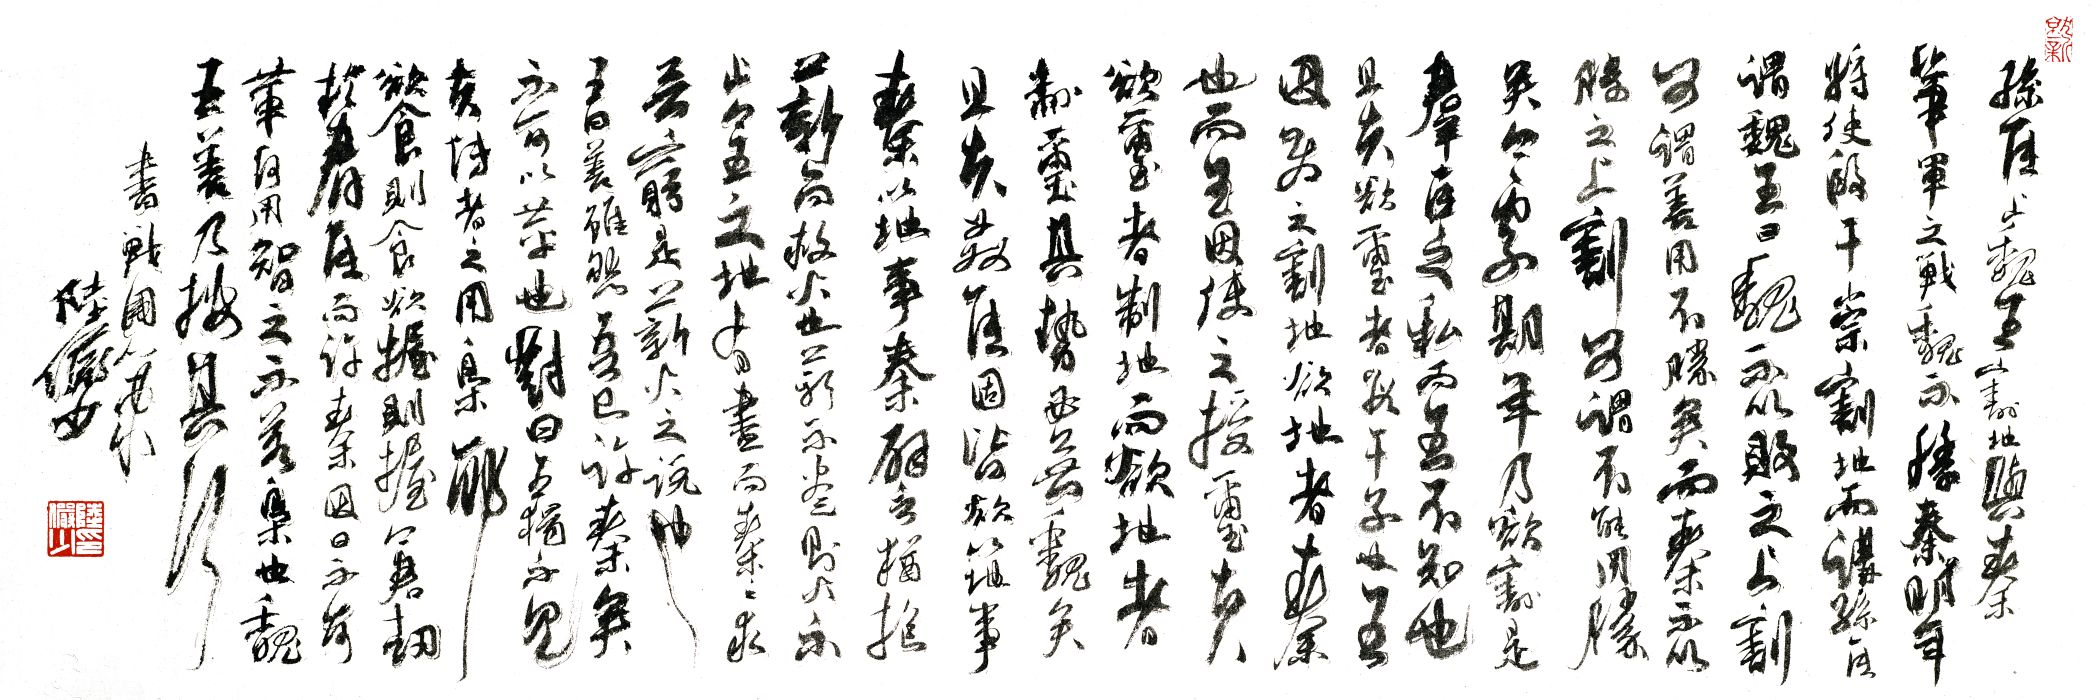 孫臣止魏王以割地與秦
華軍之戰魏不勝秦明年
將使段干崇割地而講孫臣
謂魏王曰魏不以敗之上割
可謂善用不勝矣而秦不以
勝之上割可謂不能用勝
矣今處期年乃欲割是
羣臣之私而王不知也
且夫欲璽者段干子也王
因使之割地欲地者秦
也而王因使之授璽夫
欲璽者制地而欲地者
制璽其勢必無魏矣
且夫姦臣固皆欲以地事
秦以地事秦譬猶抱
薪而救火也薪不盡則火不
止今王之地有盡而秦之求
無窮是薪火之說也
王曰善雖然吾已許秦矣
不可以革也對曰王獨不見
夫博者之用梟邪
欲食則食欲握則握今君劫
於羣臣而許秦因曰不可
革何用智之不若梟也魏
王善乃按其行
書戰國策
陸儼少
陸印儼少